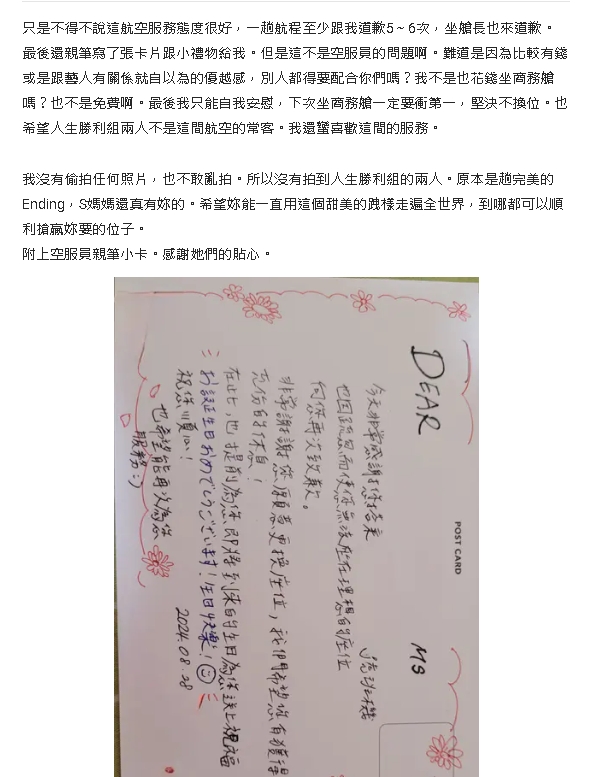 只是不得不說這航空服務態度很好，一趟航程至少跟我道歉5～6次，坐艙長也來道歉。
最後還親筆寫了張卡片跟小禮物給我。但是這不是空服員的問題啊。難道是因為比較有錢
或是跟藝人有關係就自以為的優越感，別人都得要配合你們嗎？我不是也花錢坐商務艙
嗎？也不是免費啊。最後我只能自我安慰，下次坐商務艙一定要衝第一，堅決不換位。也
希望人生勝利組兩人不是這間航空的常客。我還蠻喜歡這間的服務。
我沒有偷拍任何照片，也不敢亂拍。所以沒有拍到人生勝利組的兩人。原本是趟完美的
Ending，S媽媽還真有妳的。希望妳能一直用這個甜美的跩樣走遍全世界，到哪都可以順
利搶贏妳要的位子。
附上空服員親筆小卡。感謝她們的貼心。
POST CARD
DEAR MS
今天非常感謝您搭乘 這班機
也因疏忽而使您無法坐在理想的座位
向您再次致歉。
非常謝謝您願意更換座位，我們希望您有獲得
充份的休息！
在此，也提前為您即將到來的生日為您送上祝福
お誕生日おめでとうございます！生日快樂！
祝您順心！
也希望能再次為您
服務:)
2024.08.28